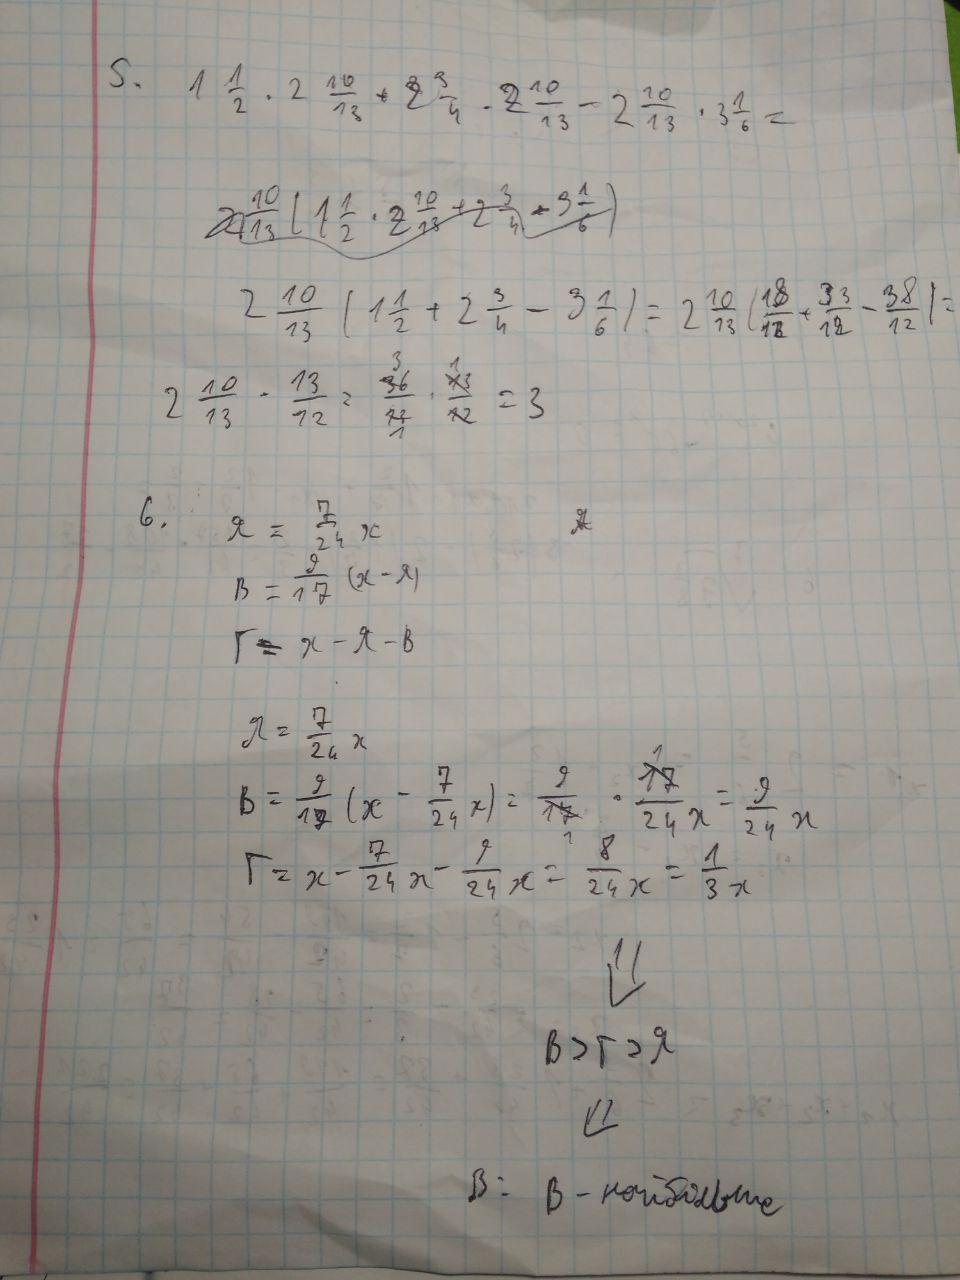 5. 1 1/2 · 2 10/13 + 2 3/4 · 2 10/13 − 2 10/13 · 3 1/6 =
2 10/13 (1 1/2 · 2 10/13 + 2 3/4 - 3 1/6)
2 10/13 (1 1/2 + 2 3/4 − 3 1/6) = 2 10/13 (18/12 + 33/12 − 38/12) =
2 10/13 · 13/12 = 36/13 · 13/12 = 3
6. Я = 7/24 x
В = 9/17 (x − Я)
Г = x − Я − В
Я = 7/24 x
В = 9/17 (x − 7/24 x) = 9/17 · 17/24 x = 9/24 x
Г = x − 7/24 x − 9/24 x = 8/24 x = 1/3 x
⇓
В > Г > Я
⇓
В: В - наибольше